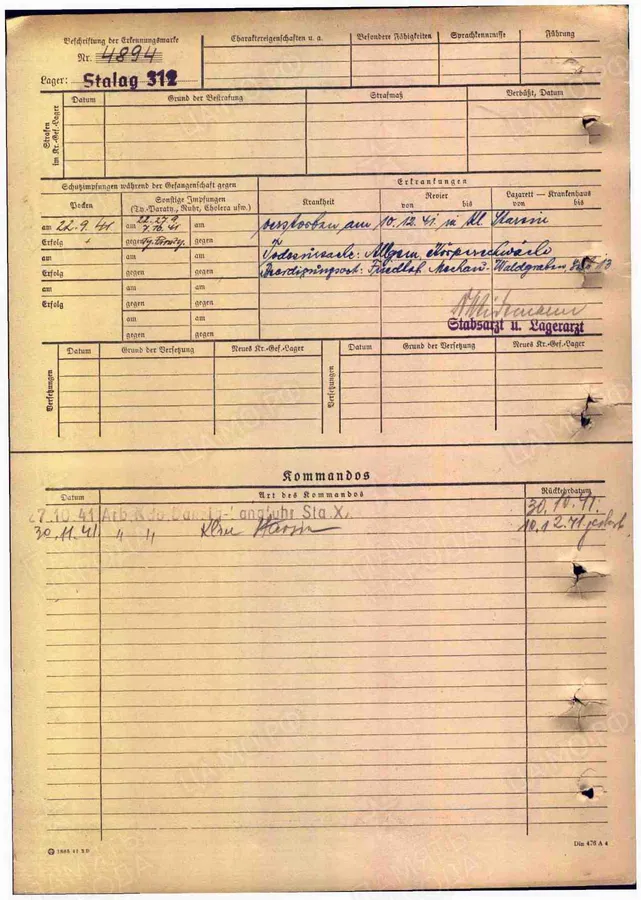 Beschriftung der Erkennungsmarke
Nr. 4894
Lager: Stalag 312
Charaktereigenschaften u. a.
Besondere Fähigkeiten
Sprachkenntnisse
Führung
Strafen im Kr.-Gef.-Lager
Datum
Grund der Bestrafung
Strafmaß
Verbüßt, Datum
Schutzimpfungen während der Gefangenschaft gegen
Erkrankungen
Pocken
Sonstige Impfungen
(Ty.-Paraty., Ruhr, Cholera usw.)
Krankheit
Revier
von bis
Lazarett — Krankenhaus
von bis
am 22.9.41 am 22.-27.9. 7.10.41 am
Erfolg gegen gegen
verstorben am 10.12.41 in Kl. Starsin
am am am
Todesursache: Allgem. Körperschwäche
Erfolg gegen gegen
Beerdigungsort: Friedhof Mechau-Waldgraben,
am am am
Erfolg gegen gegen
am am
gegen gegen
Stabsarzt u. Lagerarzt
Versetzungen
Datum
Grund der Versetzung
Neues Kr.-Gef.-Lager
Versetzungen
Datum
Grund der Versetzung
Neues Kr.-Gef.-Lager
Kommandos
Datum
Art des Kommandos
Rückkehrdatum
27.10.41 Arb.Kdo. Danzig-Langfuhr Sta.X. 30.10.41.
30.11.41 " " Starsin 10.12.41 gestorb.
Din 476 A 4
ЦАМО РФ
ПАМЯТЬ НАРОДА